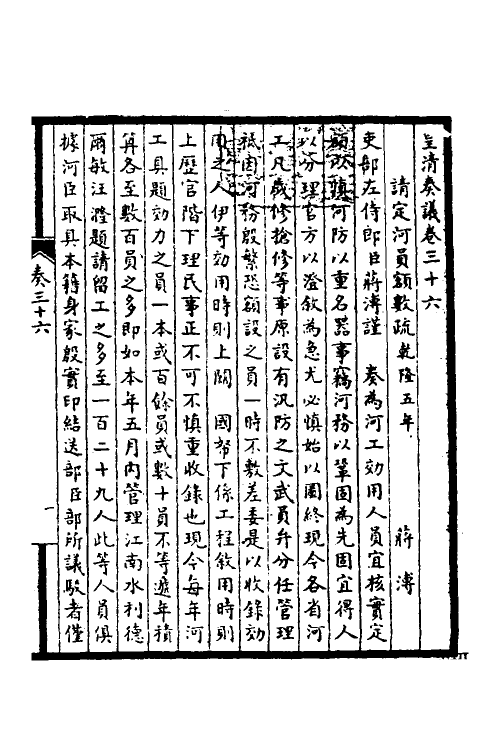 皇清奏議卷三十六
請定河員額數疏 乾隆五年 蔣溥
吏部左侍郎臣蔣溥謹 奏為河工効用人員宜核實定
額以慎河防以重名器事竊河務以鞏固為先固宜得人
以分理官方以澄敘為急尤必慎始以圖終現今各省河
工凡歲修搶修等事原設有汛防之文武員弁分任管理
祗因河務殷繁恐額設之員一時不敷差委是以收錄効
用之人伊等効用時則上關 國帑下係工程敘用時則
上歷官階下理民事正不可不慎重收錄也現今每年河
工具題効力之員一本或百餘員或數十員不等遞年積
筭各至數百員之多即如本年五月內管理江南水利德
爾敏汪漋題請留工之多至一百二十九人此等人員俱
據河臣取具本籍身家殷實印結送部臣部所議駁者僅
奏三十六
一